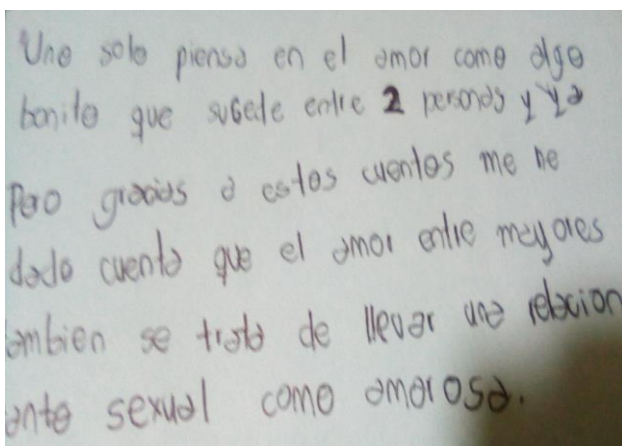 Uno solo piensa en el amor como algo
bonito que sucede entre 2 personas y ya
Pero gracias a estos cuentos me he
dado cuenta que el amor entre mayores
ambien se trata de llevar una relacion
anto sexual como amorosa.